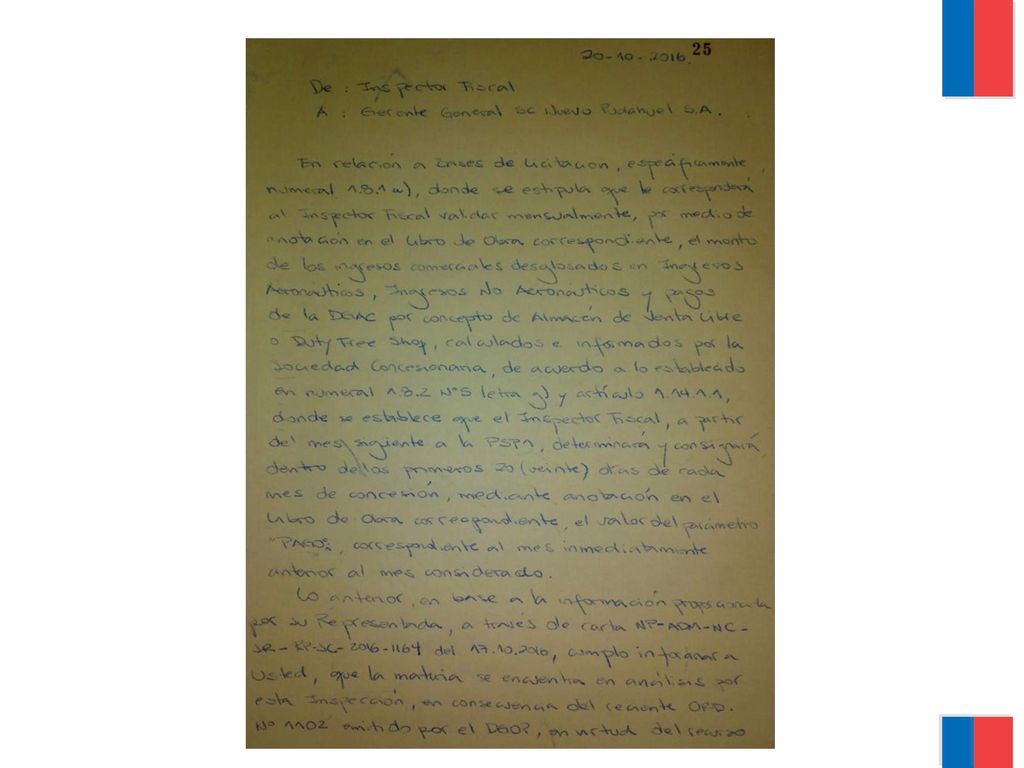 20-10-2016. 25
De : Inspector Fiscal
A : Gerente General SC Nuevo Pudahuel S.A.
En relación a Bases de Licitación, específicamente,
numeral 1.8.1 a), donde se estipula que le corresponderá
al Inspector Fiscal validar mensualmente, por medio de
anotación en el Libro de Obra correspondiente, el monto
de los ingresos comerciales desglosados en Ingresos
Aeronáuticos, Ingresos No Aeronáuticos y pagos
de la DGAC por concepto de Almacén de Venta Libre
o Duty Free Shop, calculados e informados por la
Sociedad Concesionaria, de acuerdo a lo establecido
en numeral 1.8.2 N°5 letra g) y artículo 1.14.1.1,
donde se establece que el Inspector Fiscal, a partir
del mes siguiente a la PSP1, determinará y consignará
dentro de los primeros 20 (veinte) días de cada
mes de concesión, mediante anotación en el
Libro de Obra correspondiente, el valor del parámetro
correspondiente al mes inmediatamente
anterior al mes considerado.
Lo anterior, en base a la información proporcionada
por su Representada, a través de carta NP-ADM-NC-
-SC-2016-1164 del 17.10.2016, cumplo informar a
Usted, que la materia se encuentra en análisis por
esta Inspección, en consecuencia del reciente ORD.
N° 1102 emitido por el DGOP, en virtud del recurso